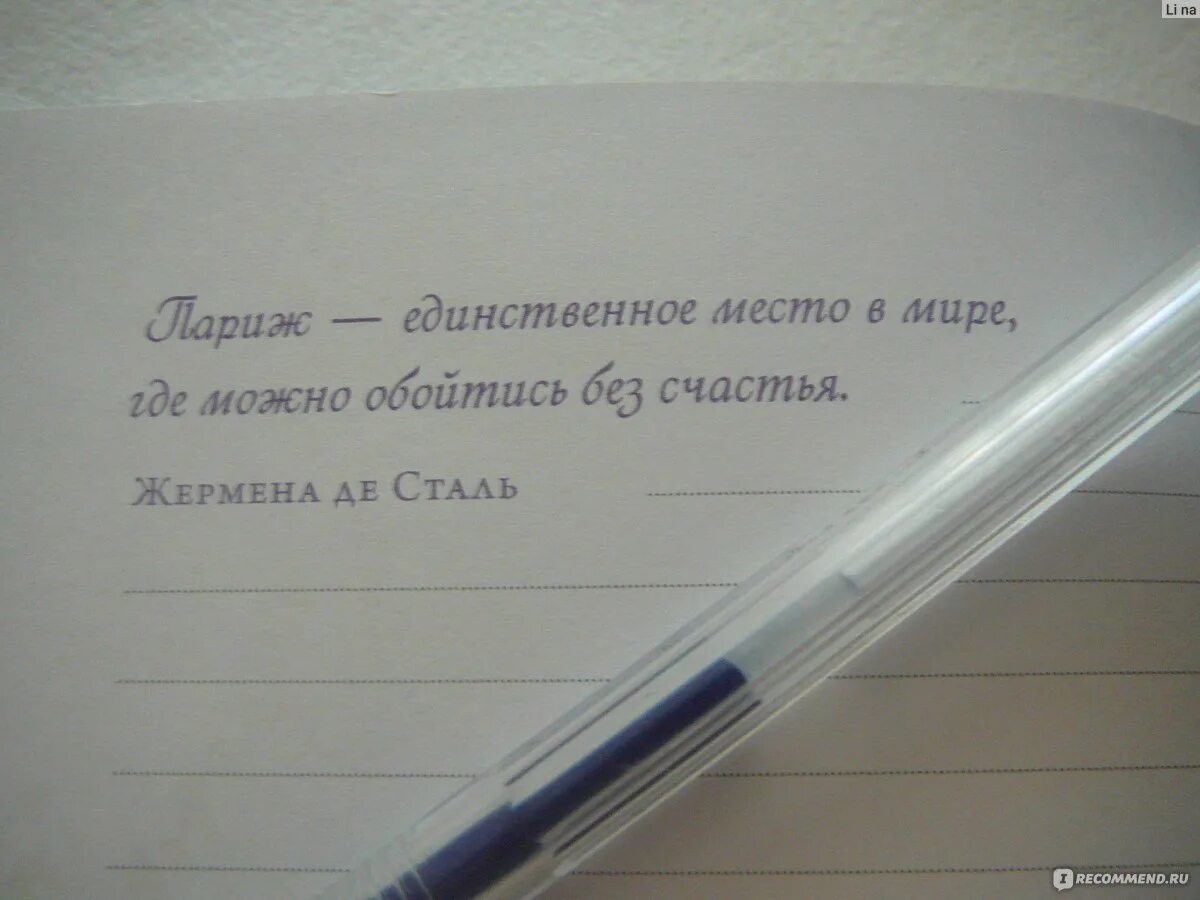 Li na
Париж — единственное место в мире,
где можно обойтись без счастья.
Жермена де Сталь
I RECOMMEND.RU